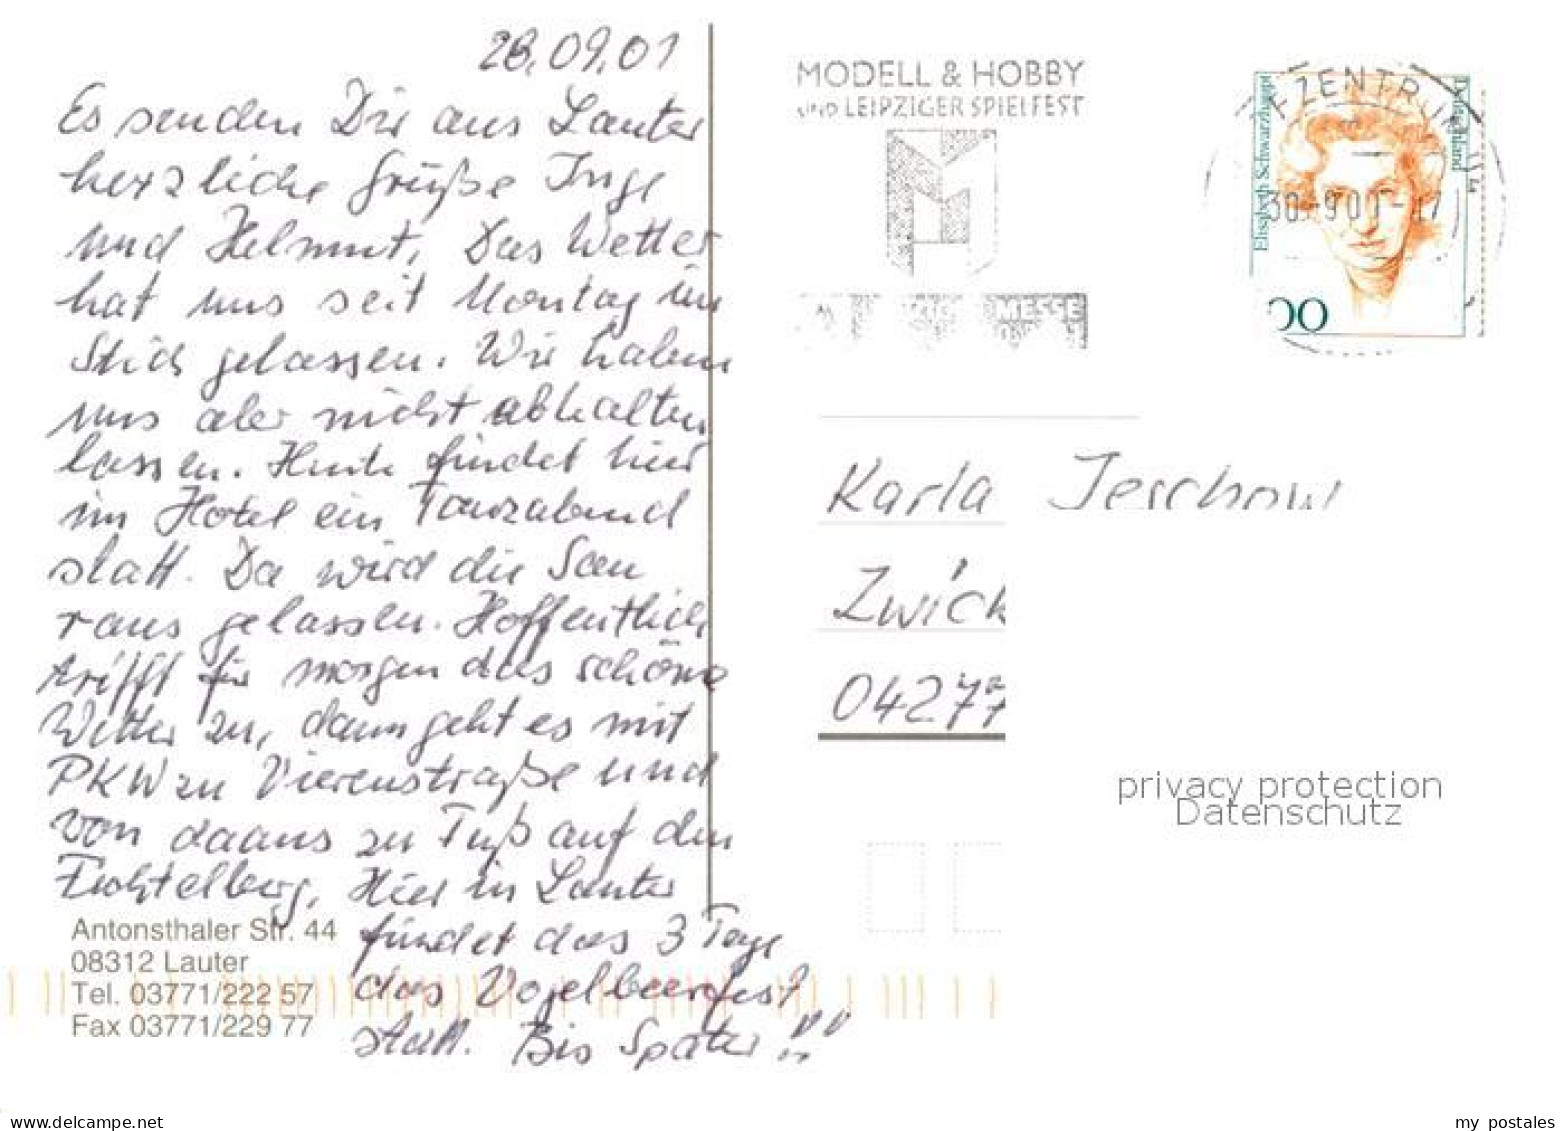 28.09.01
Es senden Dir aus Lauter
herzliche Grüße Inge
und Helmut. Das Wetter
hat uns seit Montag im
Stich gelassen. Wir haben
uns aber nicht abhalten
lassen. Heute findet hier
im Hotel ein Tanzabend
statt. Da wird die Sau
raus gelassen. Hoffentlich
trifft für morgen das schöne
Wetter zu, dann geht es mit
PKW zu Vierenstraße und
von daaus zu Fuß auf den
Fichtelberg. Hier in Lauter
findet das 3 Tage
das Vogelbeerfest
statt. Bis Später !!
Antonsthaler Str. 44
08312 Lauter
Tel. 03771/222 57
Fax 03771/229 77
MODELL & HOBBY
UND LEIPZIGER SPIELFEST
MESSE
ZENTRUM
Elisabeth Schwarzhaupt
Deutschland
00
Karla Jeschow
Zwick
04277
privacy protection
Datenschutz
www.delcampe.net
my_postales